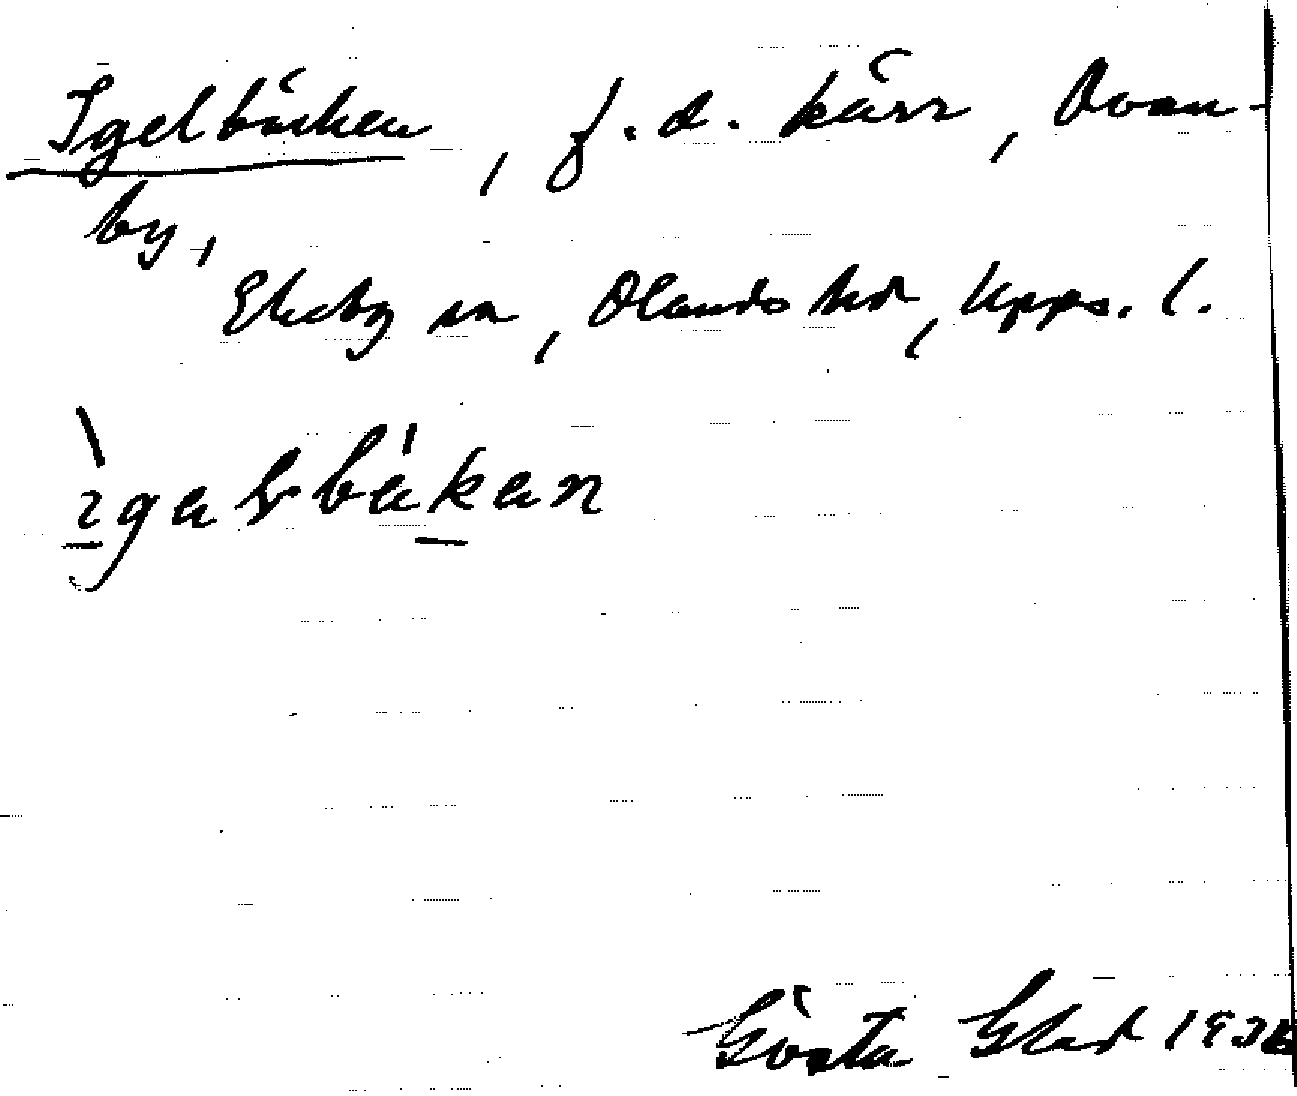 Igelbäcken, f.d. kärr, Ovan-
by,
Ekeby sn, Olands hd, Upps. l.
ìgəlsbä́kən
Gösta Glad